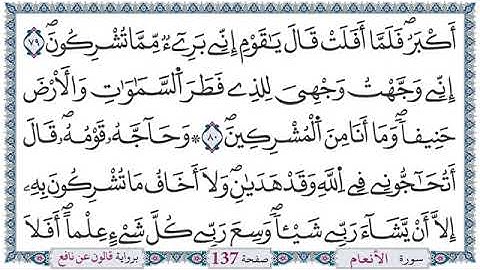 أَكْبَرُۖ فَلَمَّا أَفَلَتْ قَالَ يَٰقَوْمِ إِنِّے بَرِےٓءٞ مِّمَّا تُشْرِكُونَۖ ٧٩
إِنِّے وَجَّهْتُ وَجْهِيَ لِلذِے فَطَرَ اَ۬لسَّمَٰوَٰتِ وَالْأَرْضَ
حَنِيفاٗۖ وَمَا أَنَا مِنَ اَ۬لْمُشْرِكِينَۖ ٨٠ ۞ وَحَآجَّهُۥ قَوْمُهُۥۖ قَالَ
أَتُحَٰٓجُّونِے فِے اِ۬للَّهِ وَقَدْ هَدَىٰنِۖ وَلَا أَخَافُ مَا تُشْرِكُونَ بِهِۦ
إِلَّا أَنْ يَّشَآءَ رَبِّے شَيْـٔاٗۖ وَسِعَ رَبِّے كُلَّ شَےْءٍ عِلْماًۖ اَفَلَا
سورة الأنعام صفحة 137 برواية قالون عن نافع